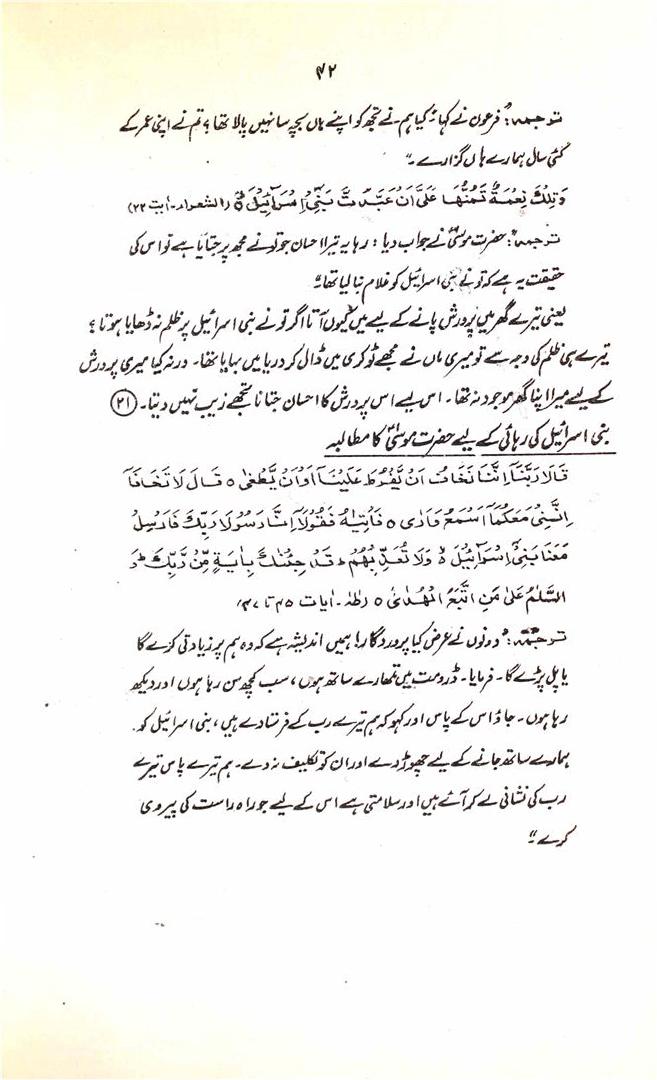 ۴۲
ترجمہ: "فرعون نے کہا۔ کیا ہم نے تجھ کو اپنے ہاں بچہ سا نہیں پالا تھا؟ تم نے اپنی عمر کے
کئی سال ہمارے ہاں گزارے۔"
وَتِلْكَ نِعْمَةٌ تَمُنُّهَا عَلَيَّ اَنْ عَبَّدْتَّ بَنِيْ اِسْرَآئِيْلَ ۵ (الشعراء۔ آیت ۲۲)
ترجمہ: "حضرت موسیٰؑ نے جواب دیا: رہا یہ تیرا احسان جو تو نے مجھ پر جتایا ہے تو اس کی
حقیقت یہ ہے کہ تو نے بنی اسرائیل کو غلام بنا لیا تھا۔"
یعنی تیرے گھر میں پرورش پانے کے لیے میں کیوں آتا اگر تو نے بنی اسرائیل پر ظلم نہ ڈھایا ہوتا؟
تیرے ہی ظلم کی وجہ سے تو میری ماں نے مجھے ٹوکری میں ڈال کر دریا میں بہایا تھا۔ ورنہ کیا میری پرورش
کے لیے میرا اپنا گھر موجود نہ تھا۔ اس لیے اس پرورش کا احسان جتانا تجھے زیب نہیں دیتا۔ (۲۱)
بنی اسرائیل کی رہائی کے لیے حضرت موسیٰؑ کا مطالبہ
قَالَا رَبَّنَآ اِنَّنَا نَخَافُ اَنْ يَّفْرُطَ عَلَيْنَآ اَوْ اَنْ يَّطْغٰى ۵ قَالَ لَا تَخَافَآ
اِنَّنِيْ مَعَكُمَآ اَسْمَعُ وَاَرٰى ۵ فَاْتِيٰهُ فَقُوْلَآ اِنَّا رَسُوْلَا رَبِّكَ فَاَرْسِلْ
مَعَنَا بَنِيْٓ اِسْرَآئِيْلَ ۵ وَلَا تُعَذِّبْهُمْ ط قَدْ جِئْنٰكَ بِاٰيَةٍ مِّنْ رَّبِّكَ ط وَ
السَّلٰمُ عَلٰى مَنِ اتَّبَعَ الْهُدٰى ۵ (طٰہٰ۔ آیات ۴۵ تا ۴۷)
ترجمہ: "دونوں نے عرض کیا پروردگار! ہمیں اندیشہ ہے کہ وہ ہم پر زیادتی کرے گا
یا پل پڑے گا۔ فرمایا۔ ڈرو مت میں تمھارے ساتھ ہوں، سب کچھ سن رہا ہوں اور دیکھ
رہا ہوں۔ جاؤ اس کے پاس اور کہو کہ ہم تیرے رب کے فرستادے ہیں، بنی اسرائیل کو
ہمارے ساتھ جانے کے لیے چھوڑ دے اور ان کو تکلیف نہ دے۔ ہم تیرے پاس تیرے
رب کی نشانی لے کر آئے ہیں اور سلامتی ہے اس کے لیے جو راہ راست کی پیروی
کرے۔"